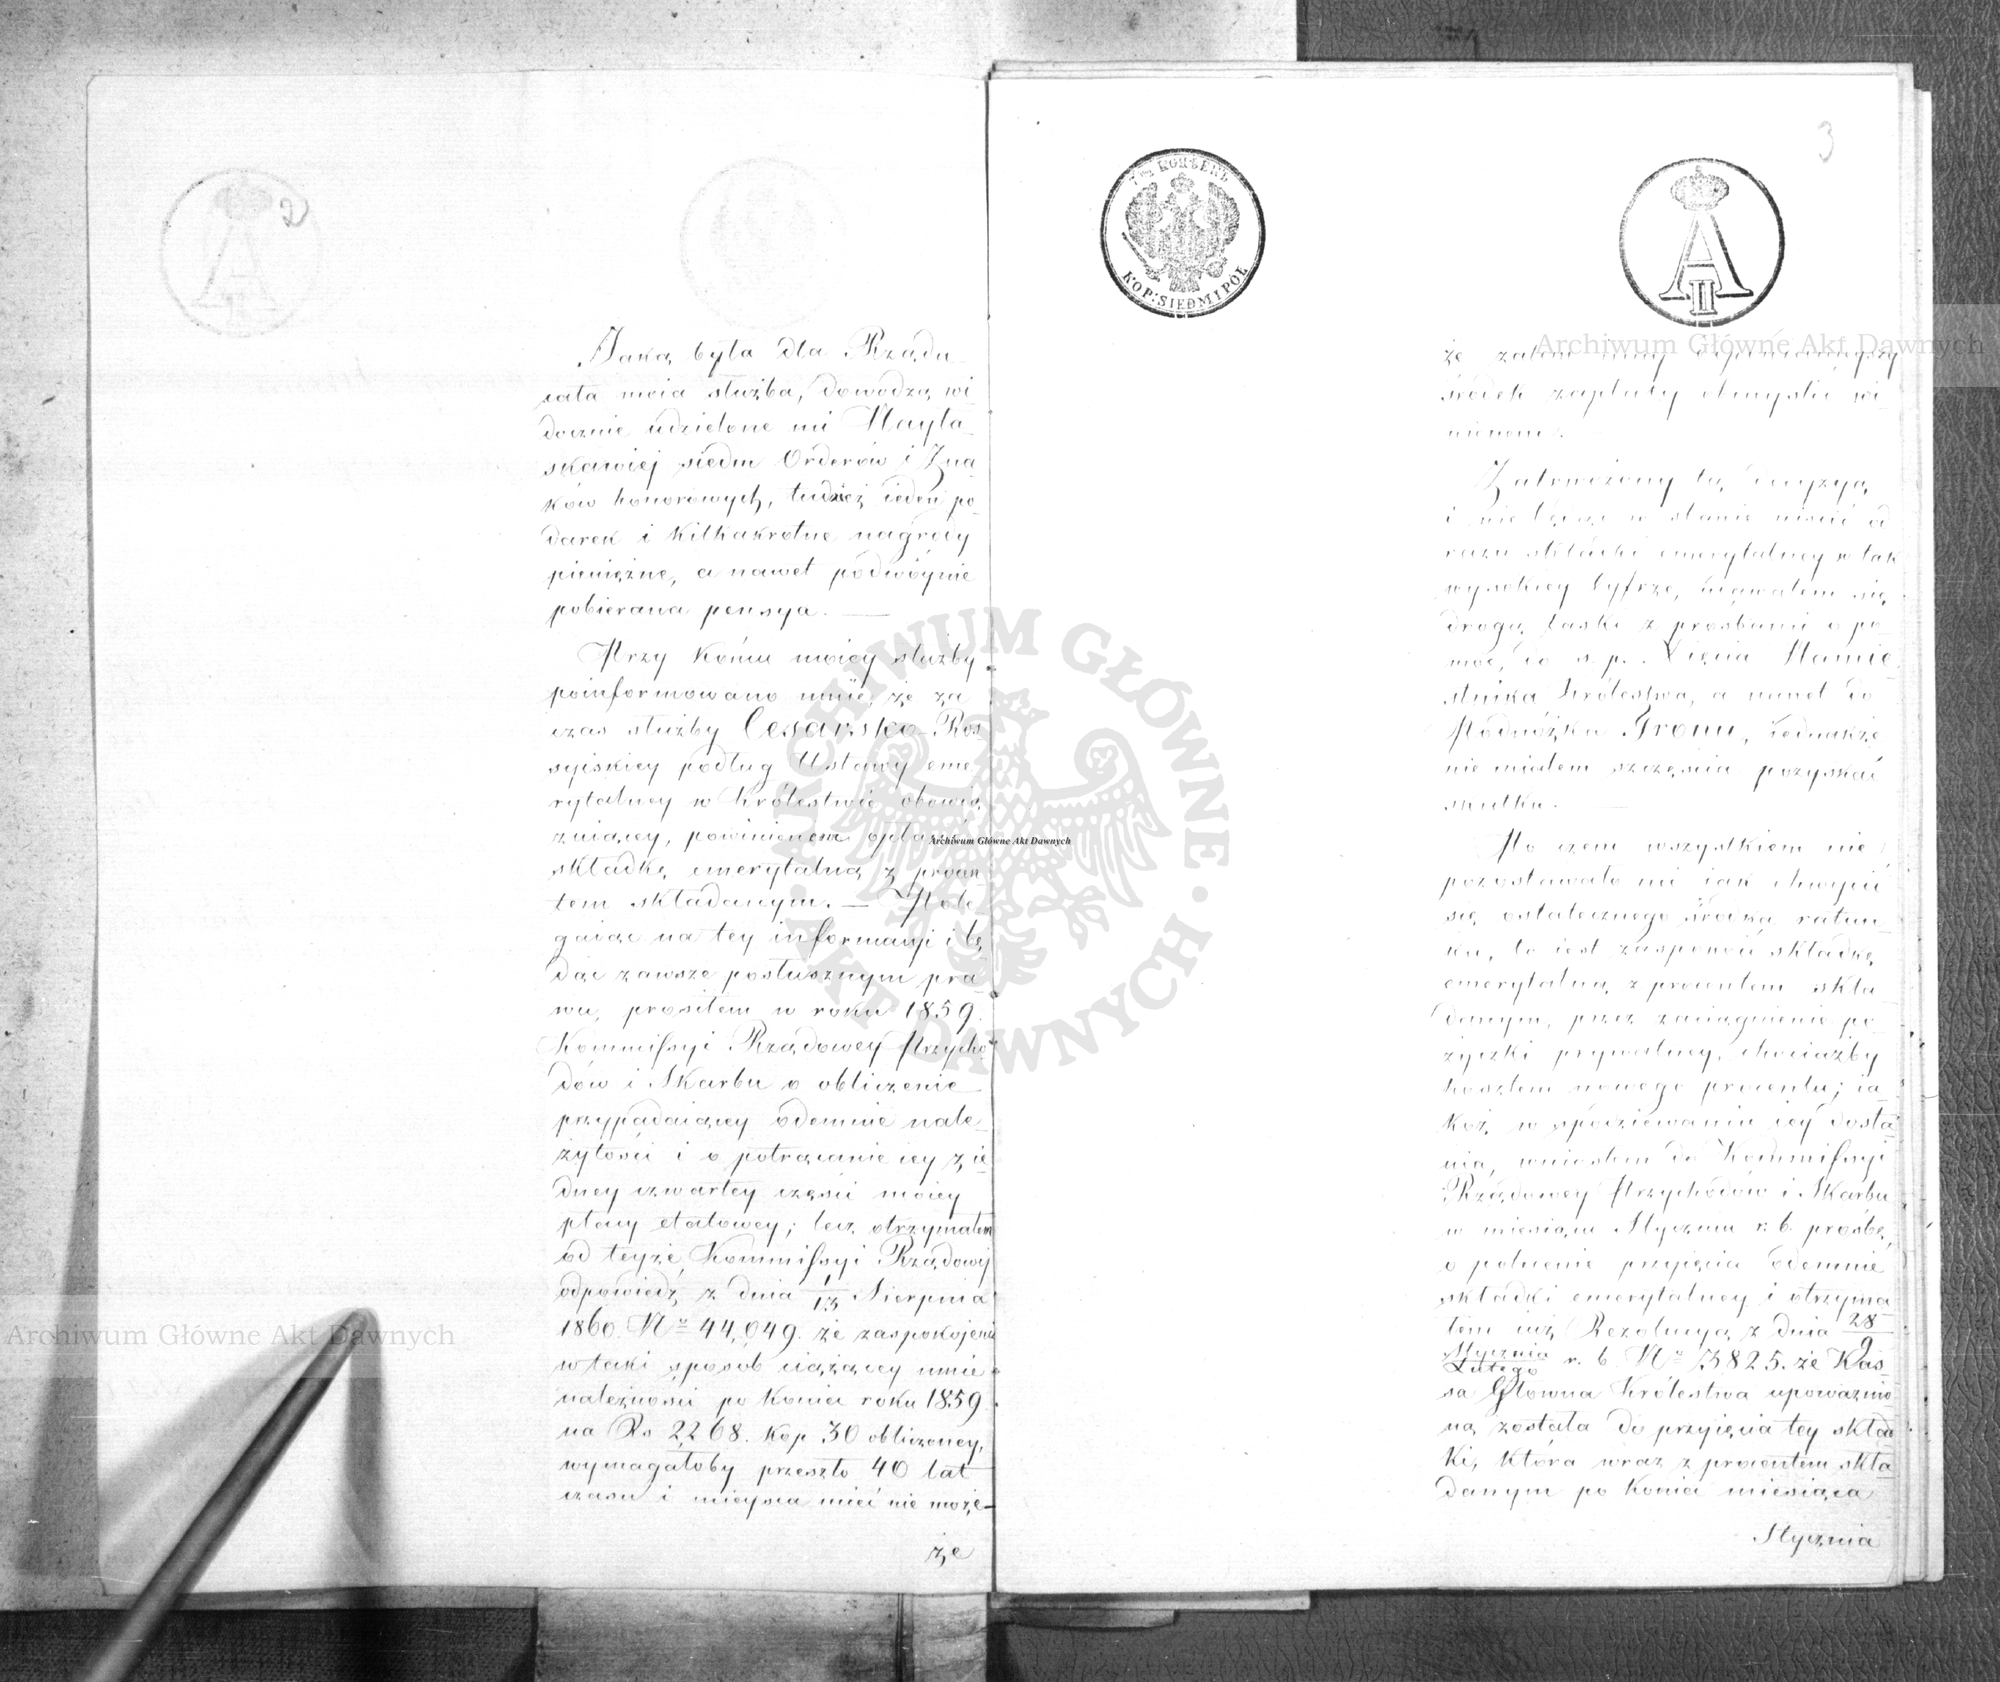 2
Jaką była dla Rządu
cała moia służba, dowodzą wi
docznie udzielone mi Nayła
skawiej siedm Orderów i Zna
ków honorowych, tudzież ieden po
darek i kilkakrotne nagrody
pieniężne, a nawet podwóynie
pobierana pensya. —
Przy końcu moiey służby
poinformowano mnie, że za
czas służby Cesarsko-Ros
syiskiey podług Ustawy eme
rytalney w Królestwie obowią
zuiącey, powinienem opła
składkę emerytalną z procen
tem składanym. — Pole
gaiąc na tey informacyi i bę
dąc zawsze posłusznym pra
wu, prosiłem w roku 1859.
Kommissyi Rządowey Przycho
dów i Skarbu o obliczenie
przypadaiącey odemnie nale
żytości i o potrącanie iey z ie
dney czwartey części moiey
płacy etatowey; lecz otrzymałem
od teyże Kommissyi Rządowy
odpowiedź z dnia 1/13 Sierpnia
1860. No 44,049. że zaspokojenie
w taki sposób ciążącey mnie
należności po koniec roku 1859
na Rs 2268. kop 30 obliczoney,
wymagałoby przeszło 40 lat
czasu i mieysca mieć nie może
że
3
7 1/2 КОПѢЕКЪ
KOP: SIEDM I PÓŁ
A II
że zatem inny
środek zapłaty obmyślić wi
nienem. —
Zatrwożony tą decyzyą
i nie będąc w stanie uiścić od
razu składki emerytalney w tak
wysokiey cyfrze, udawałem się
drogą łaski z prosbami o po
moc, do ś. p. Xięcia Namie
stnika Królestwa, a nawet do
Podnóżka Tronu, iednakże
nie miałem szczęścia pozyskać
skutku. —
Po czem wszystkiem nie
pozostawało mi iak chwycić
się ostatecznego środka ratun
ku, to iest zaspokoić składkę
emerytalną z procentem skła
danym, przez zaciągnienie po
życzki prywatney, chociażby
kosztem nowego procentu; ia
koż w spodziewaniu iey dosta
nia, wniosłem do Kommissyi
Rządowey Przychodów i Skarbu
w miesiącu Styczniu r. b. prośbę
o polecenie przyięcia odemnie
składki emerytalney i otrzyma
łem iuż Rezolucyą z dnia 28/9
Stycznia/Lutego r. b. No 13825. że Kas
sa Główna Królestwa upoważnio
ną została do przyięcia tey skład
ki, która wraz z procentem skła
danym po koniec miesiąca
Stycznia
Archiwum Główne Akt Dawnych
Archiwum Główne Akt Dawnych
Archiwum Główne Akt Dawnych
ARCHIWUM GŁÓWNE · AKT DAWNYCH ·